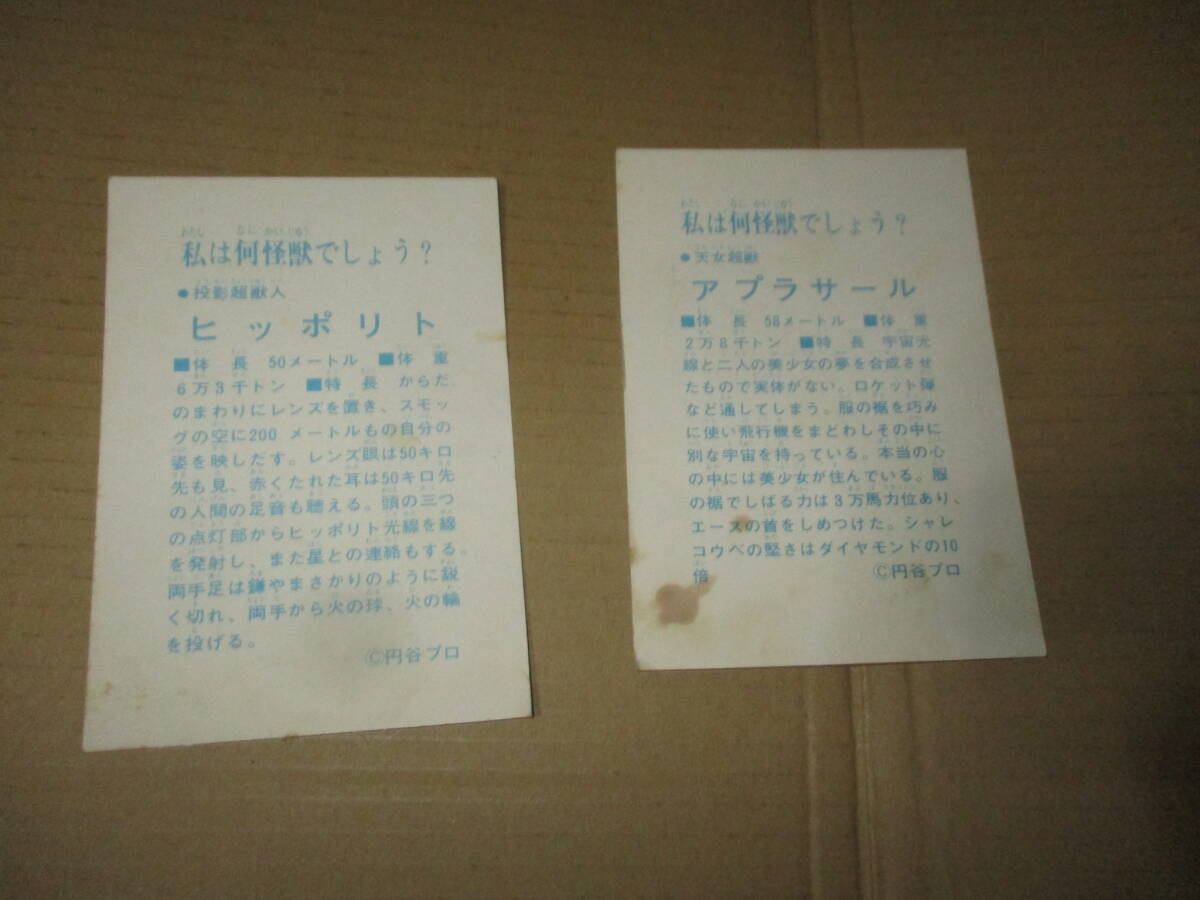 私は何怪獣でしょう？
●投影超獣人
ヒッポリト
■体長 50メートル ■体重
6万3千トン ■特長 からだ
のまわりにレンズを置き、スモッ
グの空に200 メートルもの自分の
姿を映しだす。レンズ眼は50キロ
先も見、赤くたれた耳は50キロ先
の人間の足音も聴える。頭の三つ
の点灯部からヒッポリト光線を線
を発射し、また星との連絡もする。
両手足は鎌やまさかりのように鋭
く切れ、両手から火の球、火の輪
を投げる。
©円谷プロ
私は何怪獣でしょう？
●天女超獣
アプラサール
■体長 58メートル ■体重
2万8千トン ■特長 宇宙光
線と二人の美少女の夢を合成させ
たもので実体がない。ロケット弾
など通してしまう。服の裾を巧み
に使い飛行機をまどわしその中に
別な宇宙を持っている。本当の心
の中には美少女が住んでいる。服
の裾でしばる力は3万馬力位あり、
エースの首をしめつけた。シャレ
コウベの堅さはダイヤモンドの10
倍 ©円谷プロ